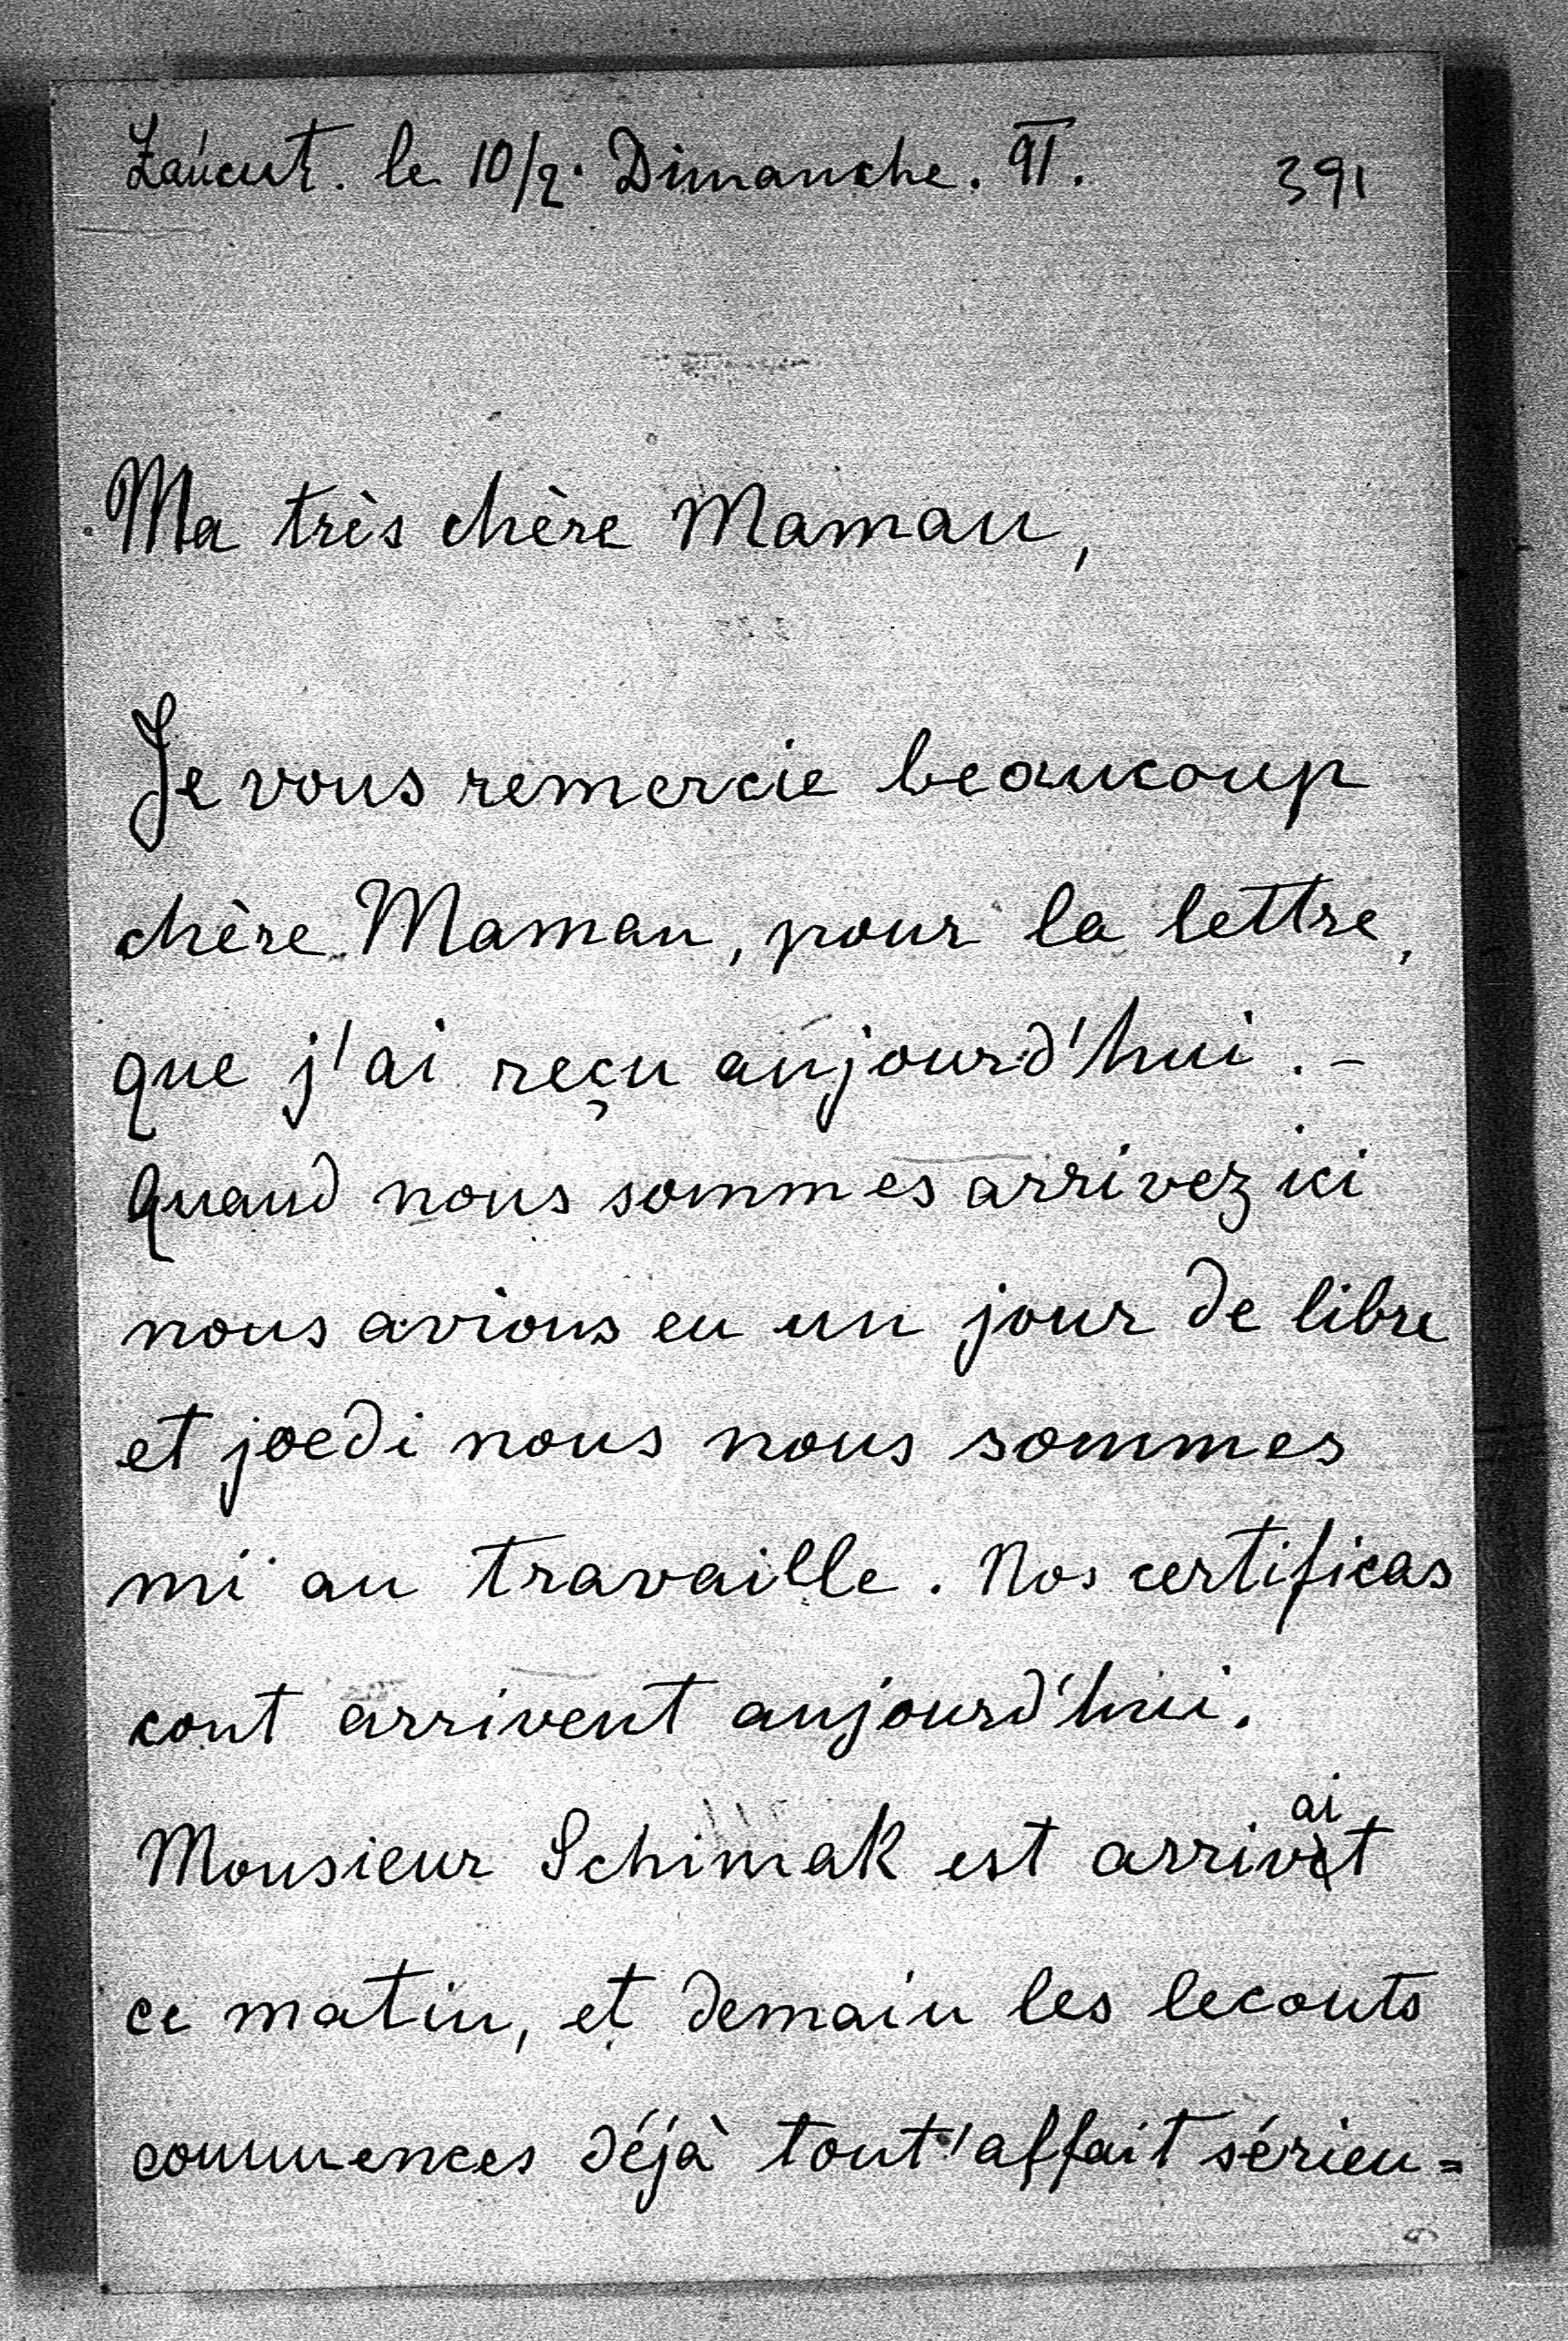 Łańcut. le 10/9. Dimanche. VI. 391
Ma très chère Maman,
Je vous remercie beaucoup
chère Maman, pour la lettre,
que j'ai reçu aujourd'hui. -
Quand nous sommes arrivez ici
nous avions eu un jour de libre
et joedi nous nous sommes
mi au travaille. Nos certificas
cont arrivent aujourd'hui.
Monsieur Schimak est arrivait
ce matin, et demain les leconts
commences déjà tout'affait sérieu=